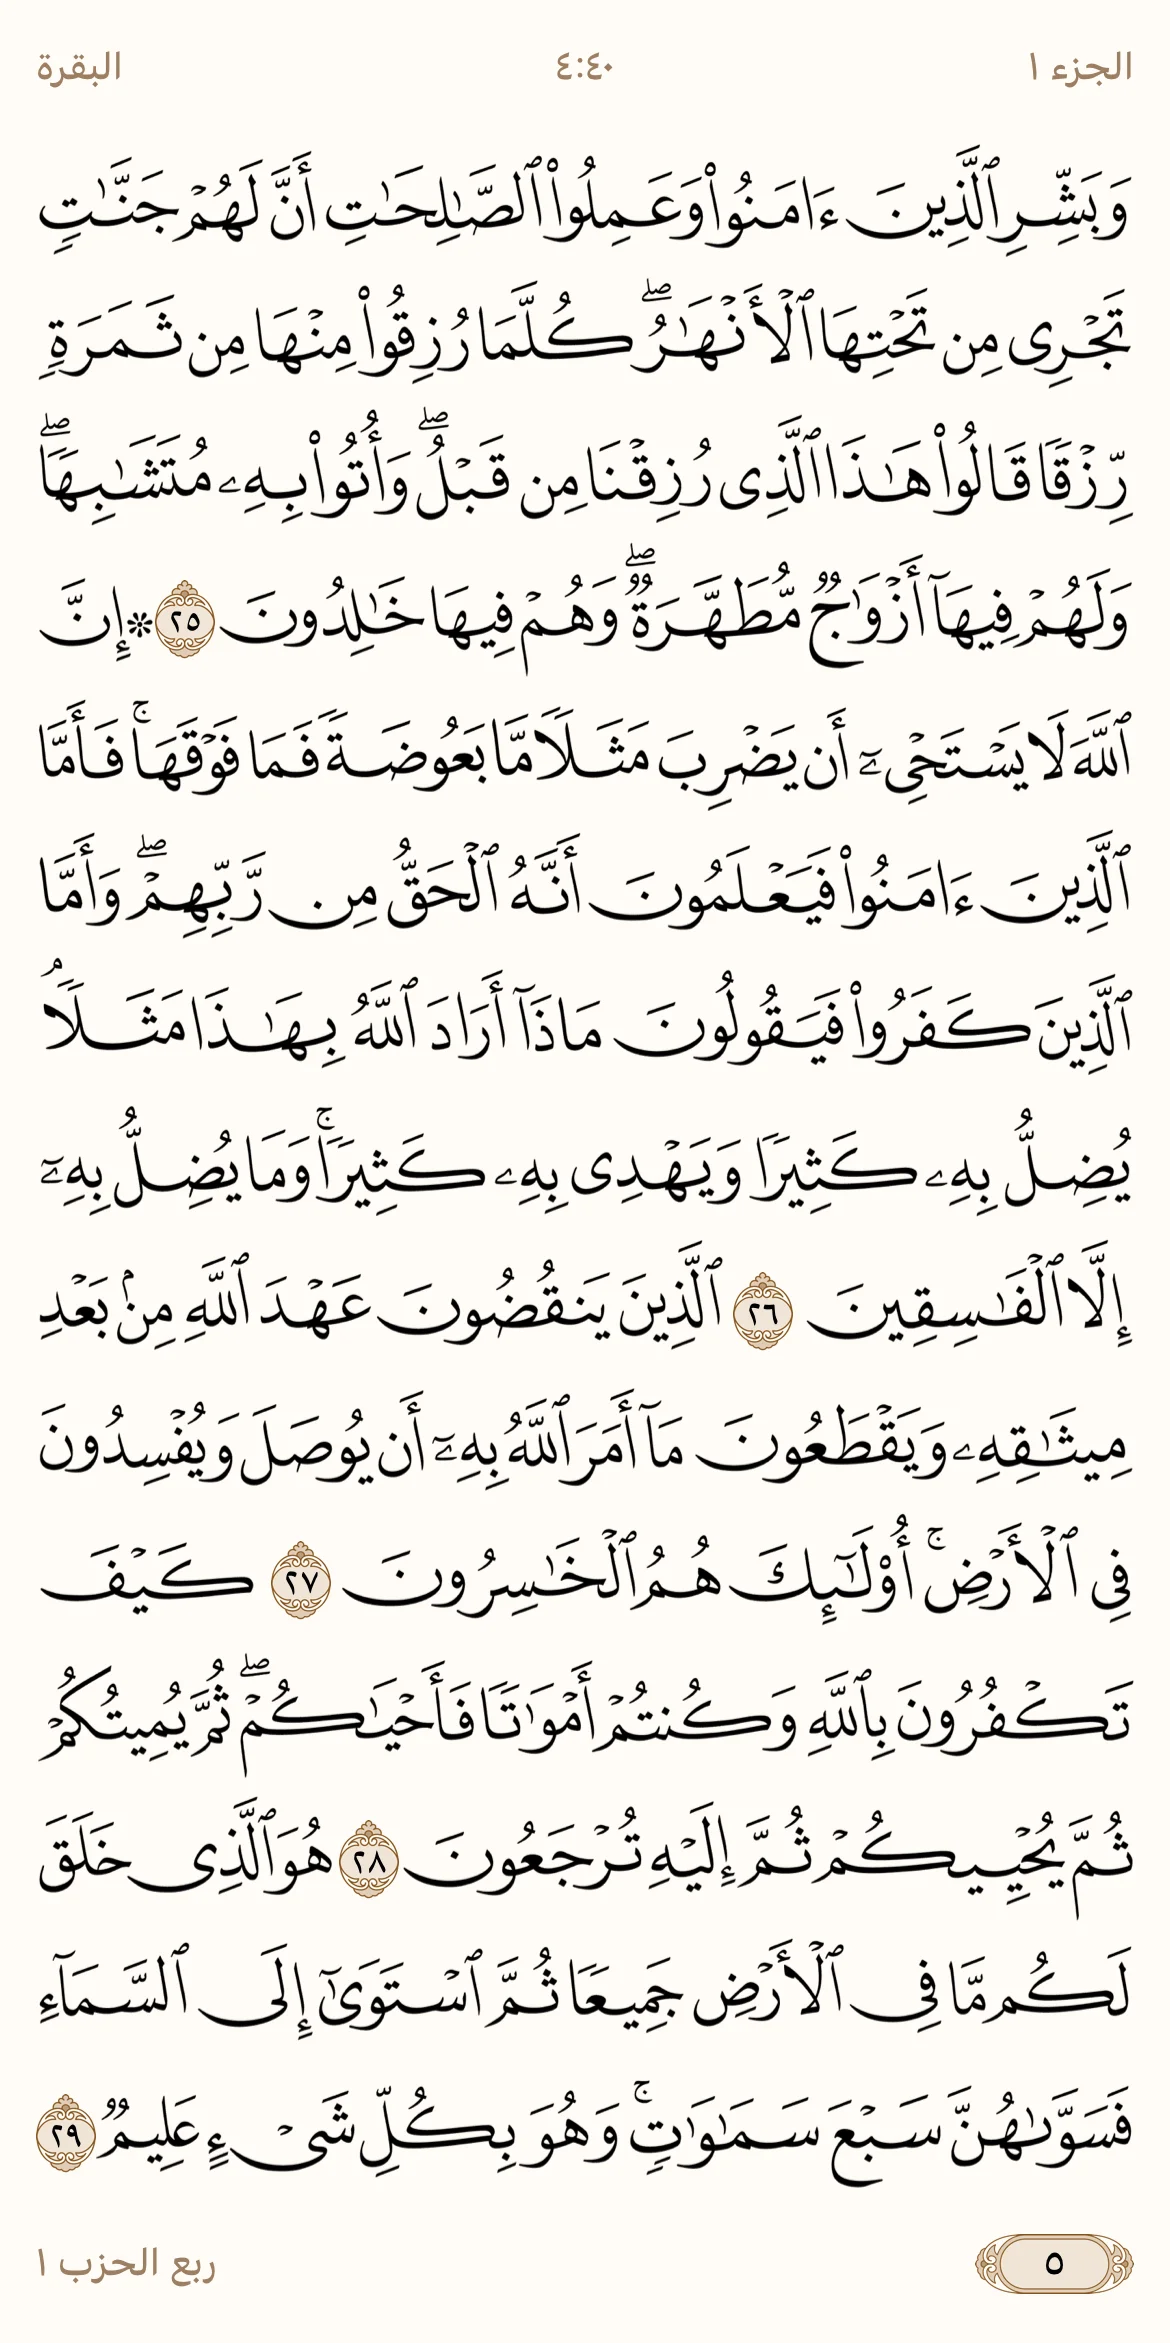 الجزء ١
٤:٤٠
البقرة
وَبَشِّرِ ٱلَّذِينَ ءَامَنُوا۟ وَعَمِلُوا۟ ٱلصَّـٰلِحَـٰتِ أَنَّ لَهُمْ جَنَّـٰتٍ
تَجْرِى مِن تَحْتِهَا ٱلْأَنْهَـٰرُ ۖ كُلَّمَا رُزِقُوا۟ مِنْهَا مِن ثَمَرَةٍ
رِّزْقًا قَالُوا۟ هَـٰذَا ٱلَّذِى رُزِقْنَا مِن قَبْلُ ۖ وَأُتُوا۟ بِهِۦ مُتَشَـٰبِهًا ۖ
وَلَهُمْ فِيهَآ أَزْوَٰجٌ مُّطَهَّرَةٌ ۖ وَهُمْ فِيهَا خَـٰلِدُونَ ٢٥ ۞ إِنَّ
ٱللَّهَ لَا يَسْتَحْىِۦٓ أَن يَضْرِبَ مَثَلًا مَّا بَعُوضَةً فَمَا فَوْقَهَا ۚ فَأَمَّا
ٱلَّذِينَ ءَامَنُوا۟ فَيَعْلَمُونَ أَنَّهُ ٱلْحَقُّ مِن رَّبِّهِمْ ۖ وَأَمَّا
ٱلَّذِينَ كَفَرُوا۟ فَيَقُولُونَ مَاذَآ أَرَادَ ٱللَّهُ بِهَـٰذَا مَثَلًا ۘ
يُضِلُّ بِهِۦ كَثِيرًا وَيَهْدِى بِهِۦ كَثِيرًا ۚ وَمَا يُضِلُّ بِهِۦٓ
إِلَّا ٱلْفَـٰسِقِينَ ٢٦ ٱلَّذِينَ يَنقُضُونَ عَهْدَ ٱللَّهِ مِنۢ بَعْدِ
مِيثَـٰقِهِۦ وَيَقْطَعُونَ مَآ أَمَرَ ٱللَّهُ بِهِۦٓ أَن يُوصَلَ وَيُفْسِدُونَ
فِى ٱلْأَرْضِ ۚ أُو۟لَـٰٓئِكَ هُمُ ٱلْخَـٰسِرُونَ ٢٧ كَيْفَ
تَكْفُرُونَ بِٱللَّهِ وَكُنتُمْ أَمْوَٰتًا فَأَحْيَـٰكُمْ ۖ ثُمَّ يُمِيتُكُمْ
ثُمَّ يُحْيِيكُمْ ثُمَّ إِلَيْهِ تُرْجَعُونَ ٢٨ هُوَ ٱلَّذِى خَلَقَ
لَكُم مَّا فِى ٱلْأَرْضِ جَمِيعًا ثُمَّ ٱسْتَوَىٰٓ إِلَى ٱلسَّمَآءِ
فَسَوَّىٰهُنَّ سَبْعَ سَمَـٰوَٰتٍ ۚ وَهُوَ بِكُلِّ شَىْءٍ عَلِيمٌ ٢٩
٥
ربع الحزب ١